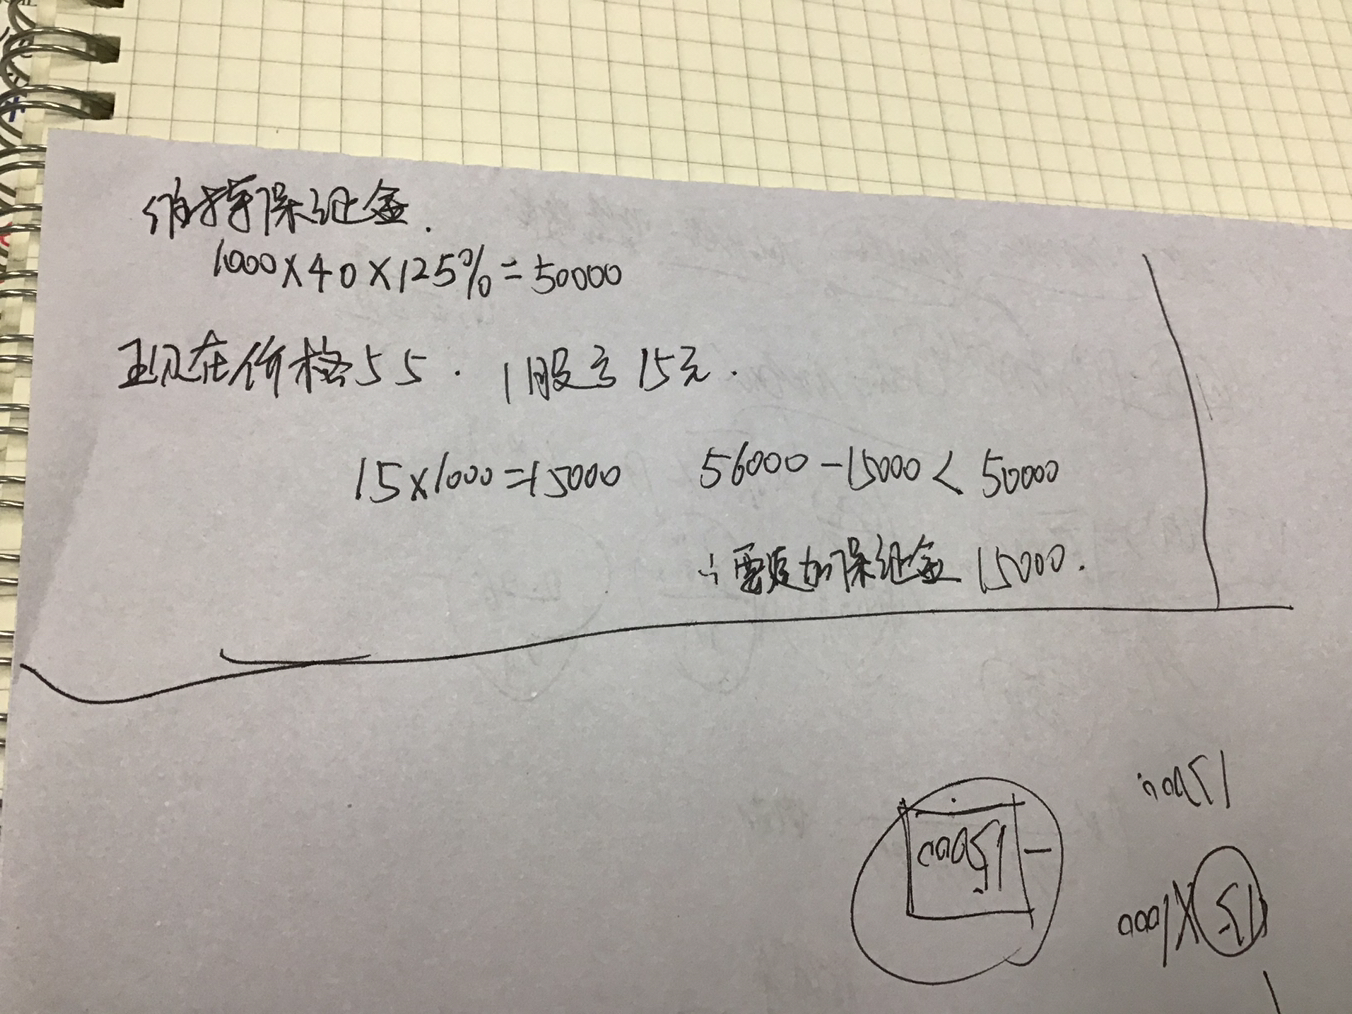 维持保证金.
1000×40×125%=50000
现在价格55. 1股亏15元.
15×1000=15000 56000-15000<50000
∴需要加保证金15000.
15000
15000 -
15×1000